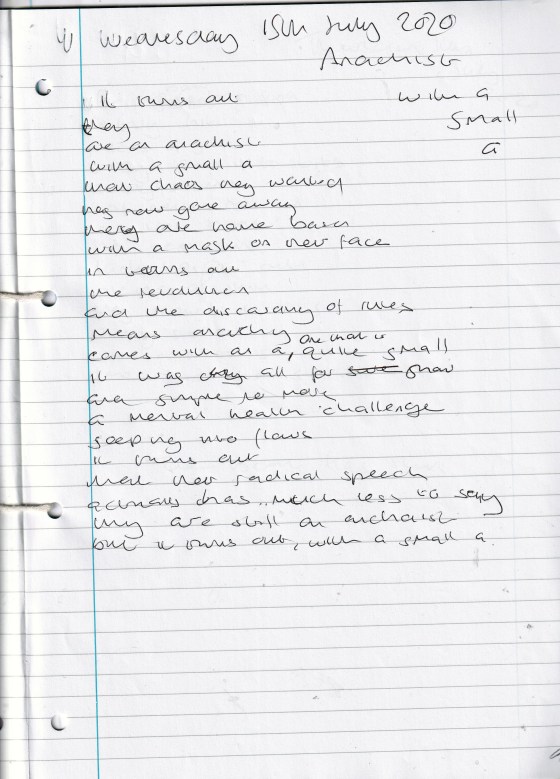 Wednesday 15th July 2020
Anarchist
with a
small
a
it turns out
they
are an anarchist
with a small a
that chaos they wanted
has now gone away
they are home bacn
with a mask on their face
in turns out
the revolution
and the discarding of rules
means anarchy one that is
comes with an a, quite small
it was all for show
and simple to
a mental health challenge
seeping into flaws
it turns out
that their radical speech
actually has much less to say
they are still an anarchist
but it turns out, with a small a